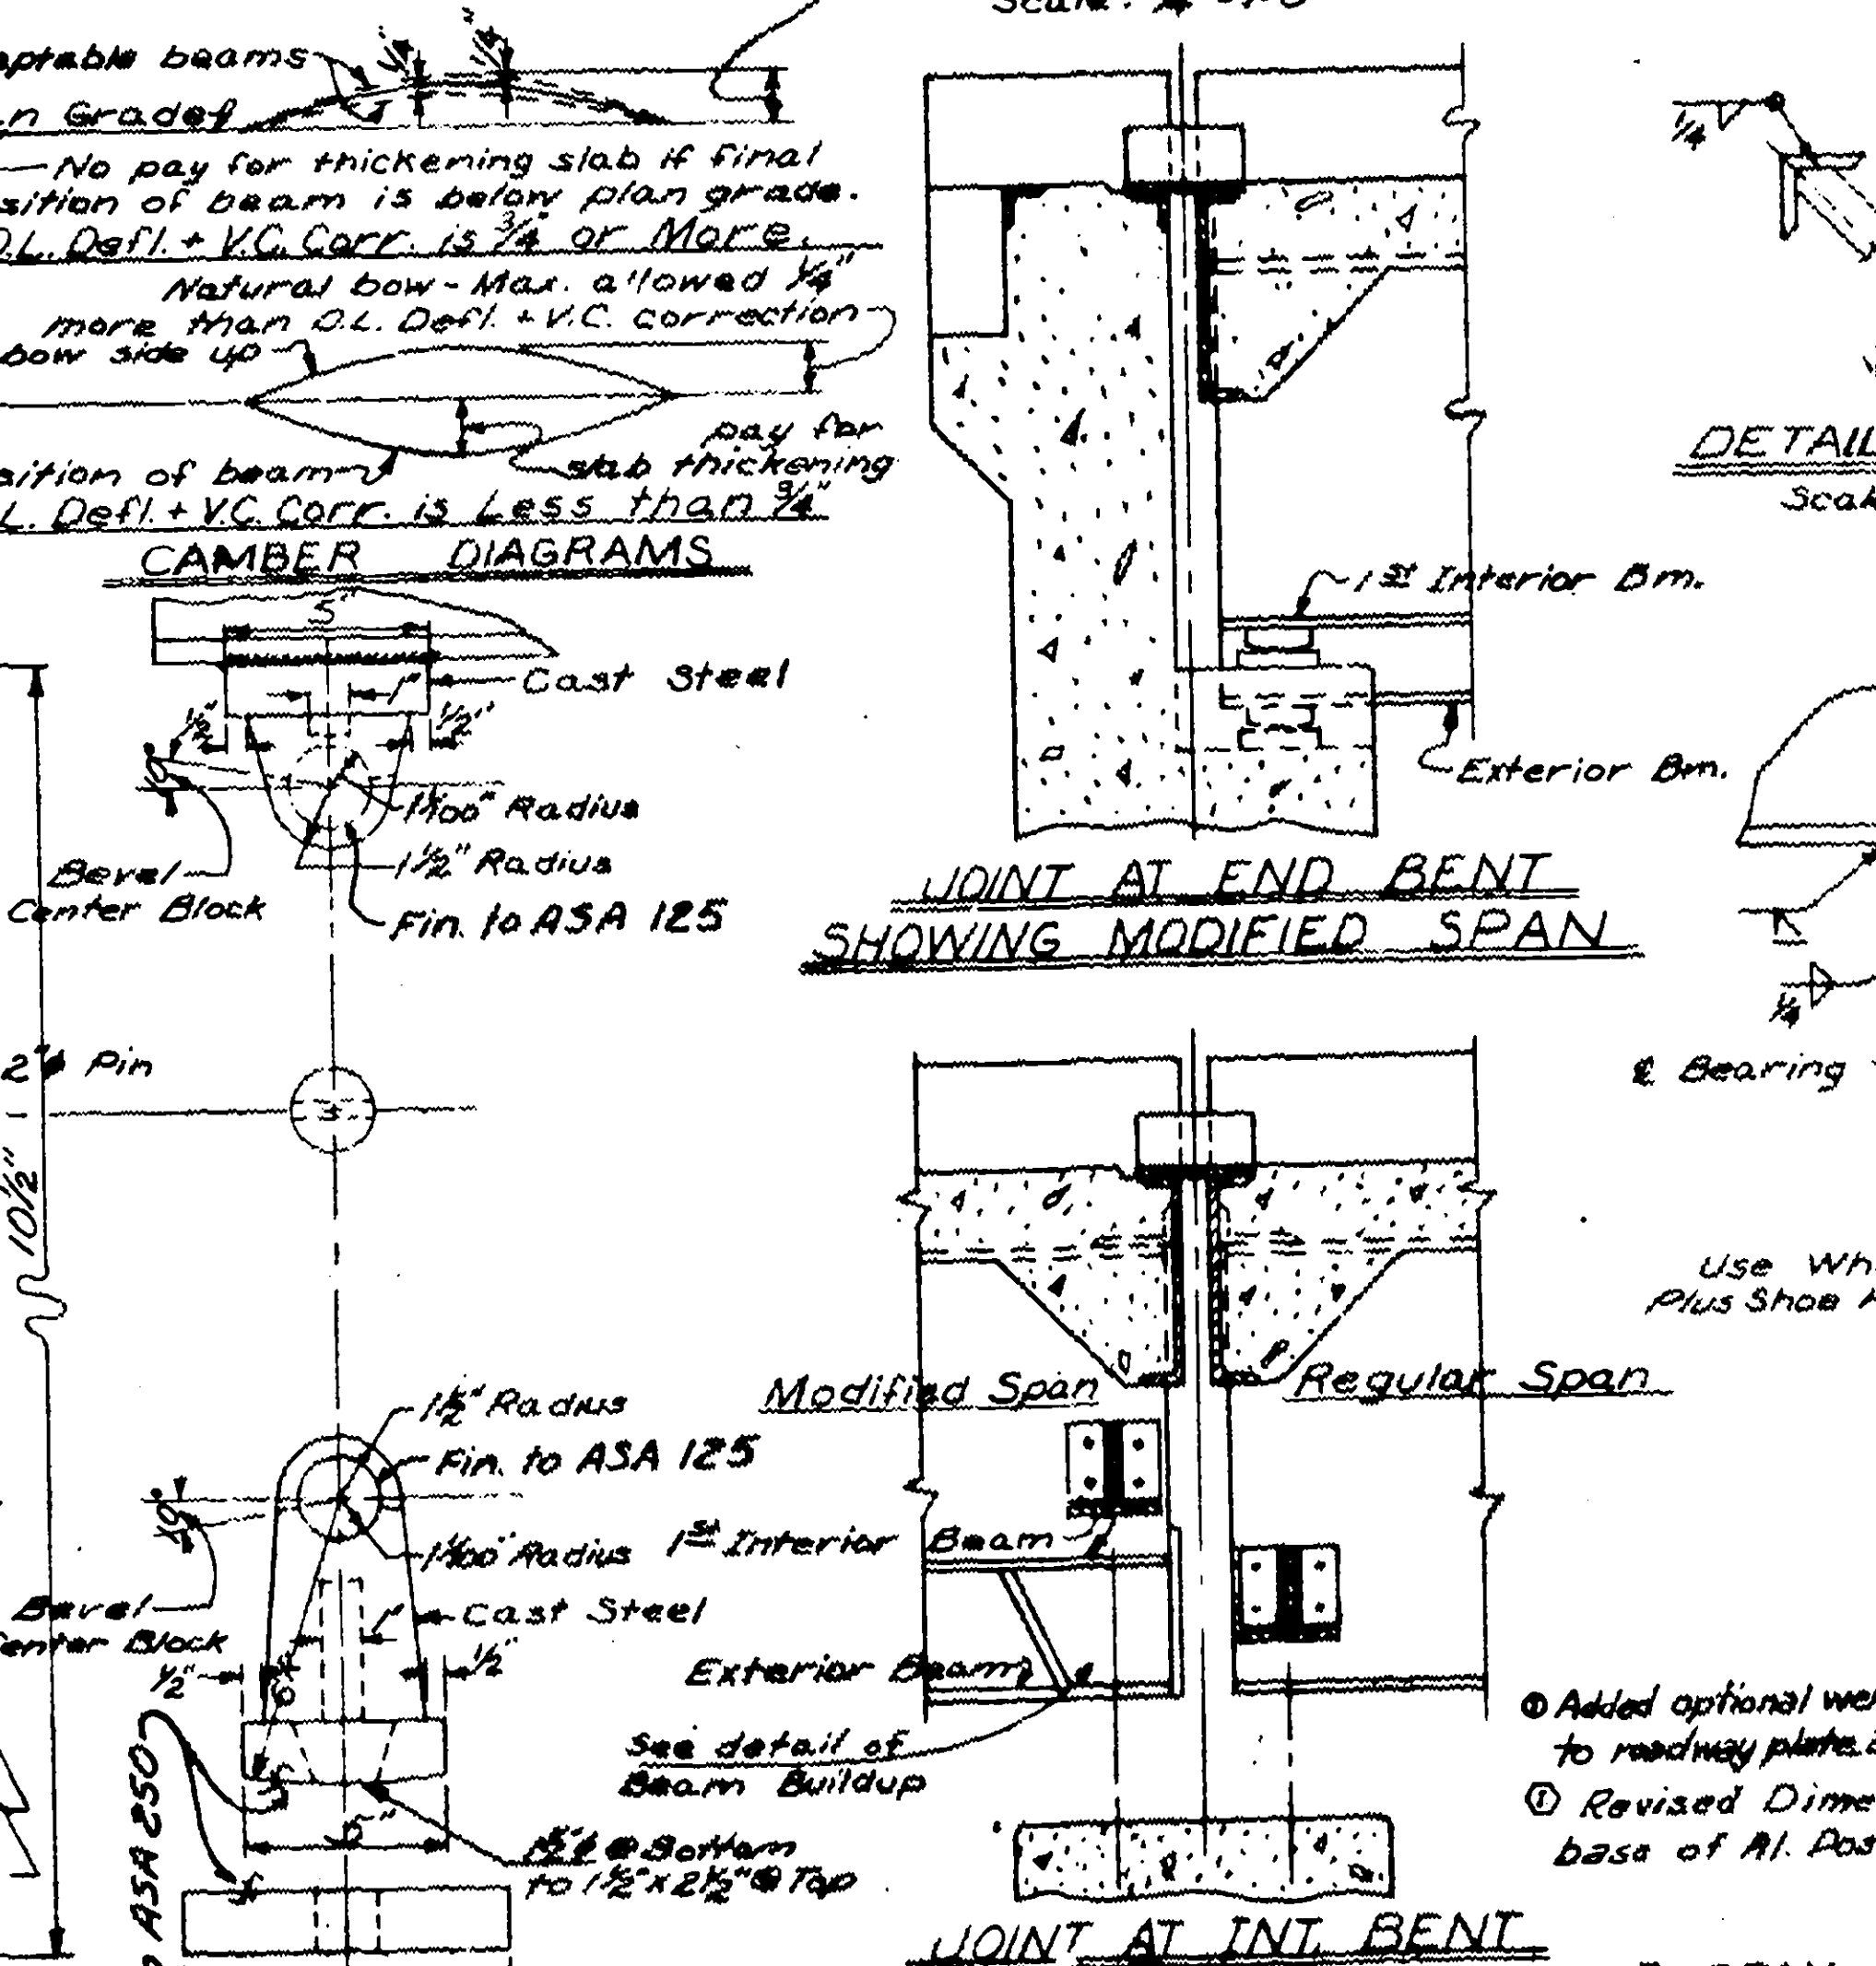 aptable beams
n Grade
No pay for thickening slab if final
sition of beam is below plan grade.
D.L. Defl. + V.C. Corr. is 3/4" or More.
Natural bow - Max. allowed 1/4"
more than D.L. Defl. + V.C. correction
bow side up
pay for
slab thickening
sition of beam
L. Defl. + V.C. Corr. is Less than 3/4"
CAMBER DIAGRAMS
5"
Cast Steel
1"
1/2"
1/2"
Radius
1 1/2" Radius
Bevel
Center Block
Fin. to ASA 125
2"ø Pin
10 1/2"
1 1/2" Radius
Fin. to ASA 125
Radius
Bevel
Center Block
Cast Steel
1"
1/2"
1/2"
5"
ASA 250
@ Bottom
to 1 1/2" x 2 1/2" @ Top
1st Interior Bm.
Exterior Bm.
JOINT AT END BENT
SHOWING MODIFIED SPAN
Modified Span
Regular Span
1st Interior Beam
Exterior Beam
See detail of
Beam Buildup
JOINT AT INT. BENT
1/4
DETAIL
Scal
1/4
℄ Bearing
Use Wh
Plus Shoe
① Added optional wel
to roadway plate
① Revised Dime
base of Al. Pos